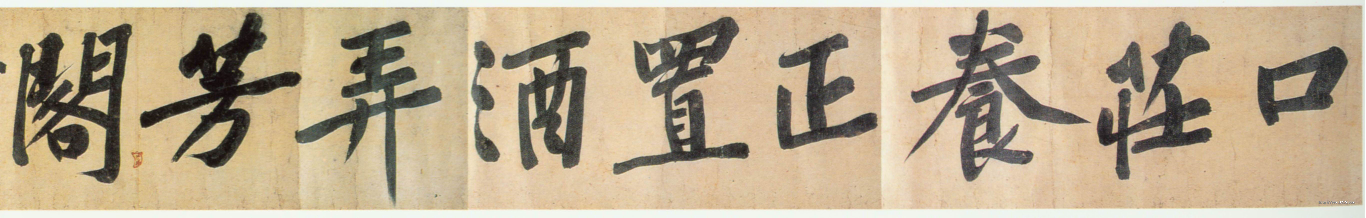 口莊養正置酒弄芳閣